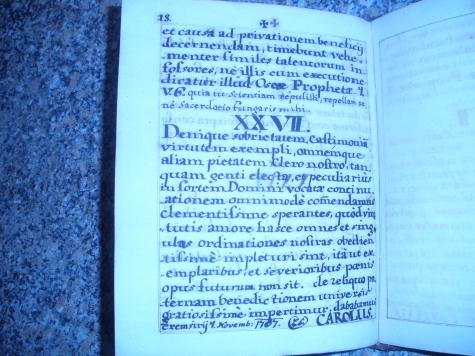 18.
et causa ad privationem beneficij
decernendam, timebunt vehe-
menter similes talentorum in-
fossores, nè illis cum executione
dicatur illud Oseæ Prophetæ
V. 6. quia tu scientiam repulisti, repellam te,
nè Sacerdotio fungaris mihi.
XXVII.
Denique sobrietatem, Castimonia
virtutem exempli, omnemque
aliam pietatem Clero nostro, tan-
quam genti electæ, et peculiarius
in sortem Domini vocatæ continu-
ationem omnimodè comendamus
clementissime sperantes, quòd vir-
tutis amore hasce omnes et sing-
ulas ordinationes nostras obedien-
tissimè impleturi sint, ità ut ex-
emplaribus, et severioribus pœnis
opus futurum non sit. de reliquo pa-
ternam benedictionem universis
gratiosissime impertimur, dabamus
Cremsirij 1. Novemb: 1707. CAROLUS.